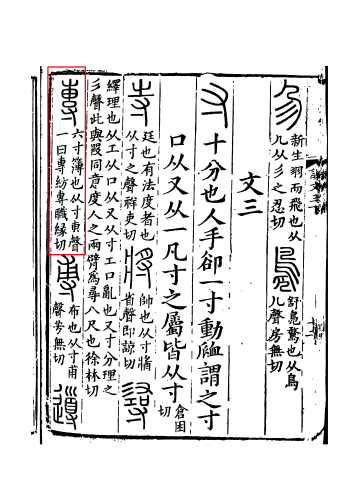 㐱
新生羽而飛也从
几从彡之忍切
鳧
舒鳧鶩也从鳥
几聲房無切
文三
寸
十分也人手卻一寸動𧖴謂之寸
口从又从一凡寸之屬皆从寸
倉困
切
寺
廷也有法度者也
从寸之聲祥吏切
將
帥也从寸牆
省聲即諒切
尋
繹理也从工从口从又从寸工口亂也又寸分理之
彡聲此與同意度人之兩臂爲尋八尺也徐林切
專
六寸簿也从寸叀聲
一曰專紡專職緣切
尃
布也从寸甫
聲芳無切
導